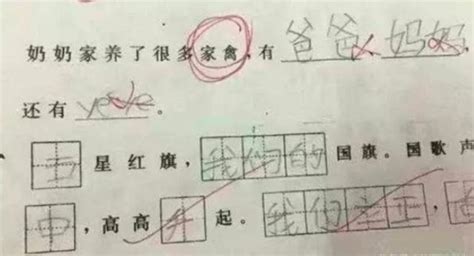 奶奶家养了很多家禽，有爸爸、妈妈，
还有yeye。
五星红旗，我们的国旗。国歌声
中，高高升起。我们立正，